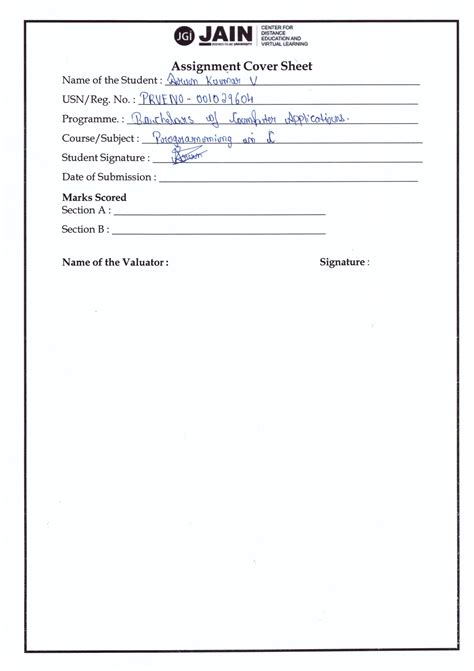 JGI JAIN CENTER FOR
DISTANCE
EDUCATION AND
VIRTUAL LEARNING
Assignment Cover Sheet
Name of the Student : Arun Kumar V
USN/Reg. No. : PRVENO - 001029604
Programme. : Bachelors of Computer Applications.
Course/Subject : Programming in C
Student Signature : Arun
Date of Submission :
Marks Scored
Section A :
Section B :
Name of the Valuator : Signature :